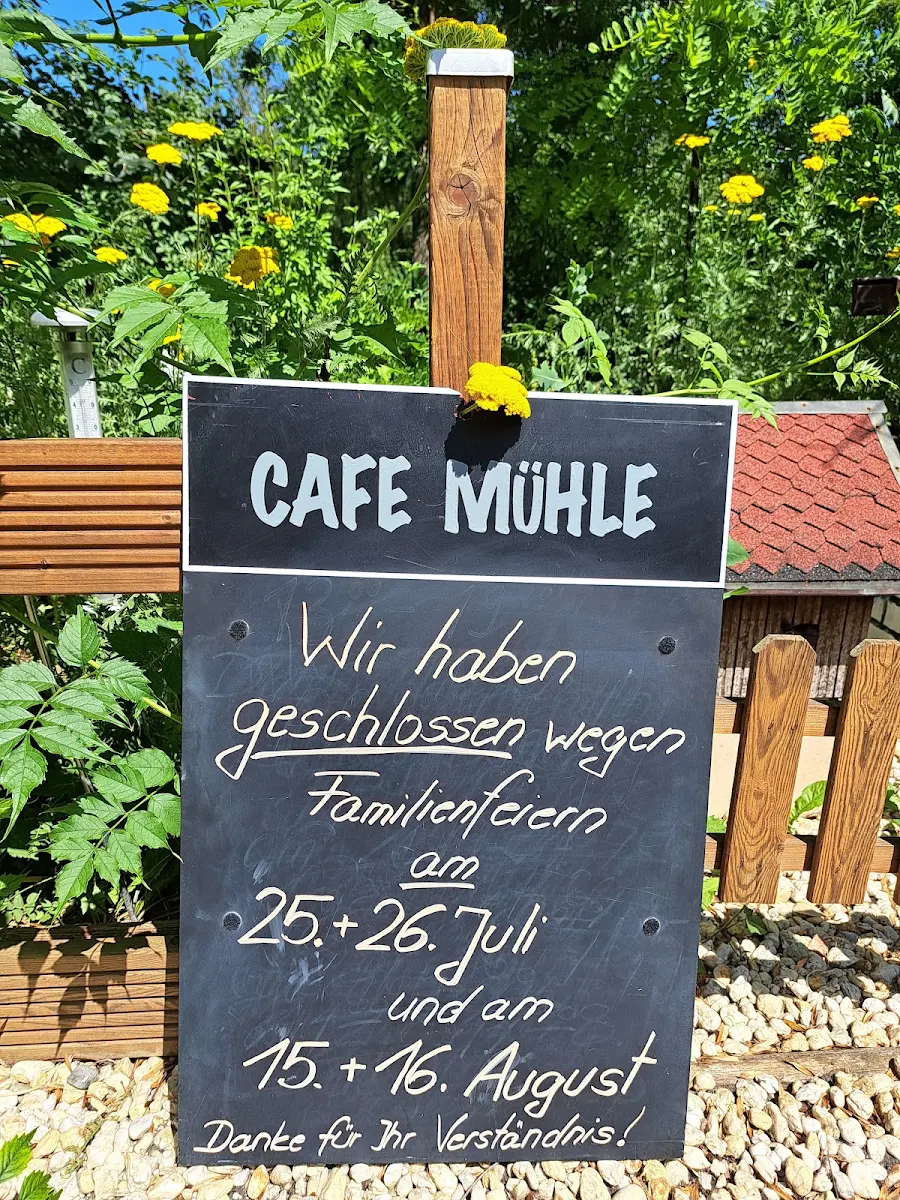 CAFE MÜHLE
Wir haben
geschlossen wegen
Familienfeiern
am
25. + 26. Juli
und am
15. + 16. August
Danke für Ihr Verständnis!